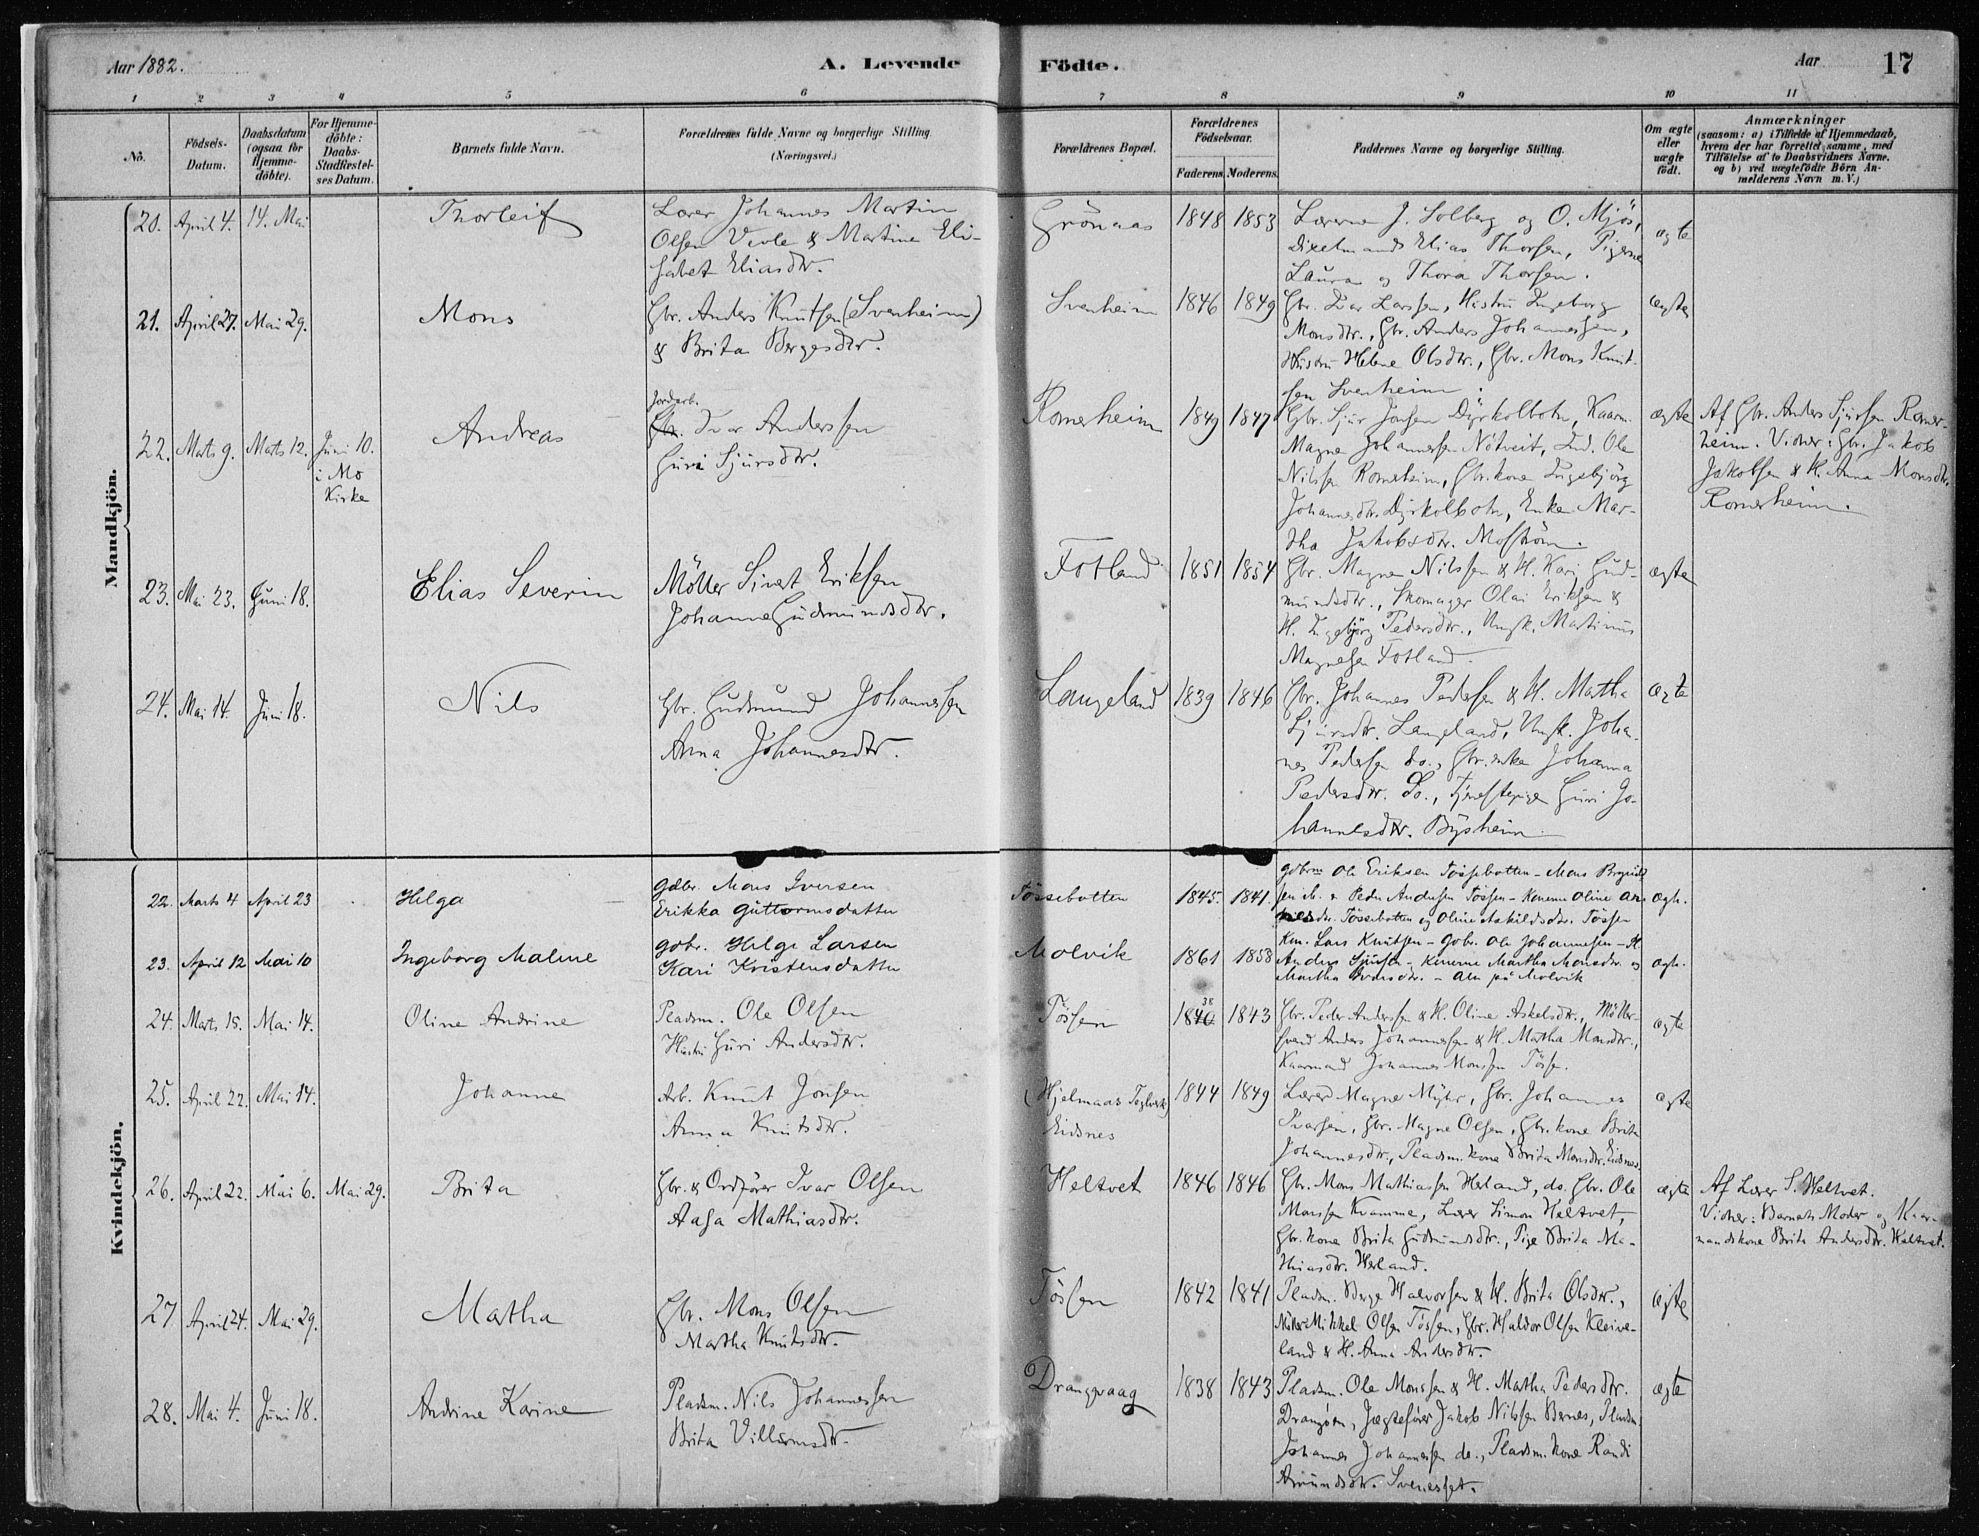 Aar 1882.
A. Levende Födte.
Aar 17
1 2 3 4 5 6 7 8 9 10 11
No.
Födsels-
Datum.
Daabsdatum
(ogsaa for
Hjemme-
döbte).
For Hjemme-
döbte:
Daabs-
Stadfæstel-
ses Datum.
Barnets fulde Navn.
Forældrenes fulde Navne og borgerlige Stilling
(Næringsvei.)
Forældrenes Bopæl.
Forældrenes
Födselsaar.
Faderens. Moderens.
Faddernes Navne og borgerlige Stilling.
Om ægte
eller
uægte
födt.
Anmærkninger
(saasom: a) i Tilfælde af Hjemmedaab,
hvem der har forrettet samme, med
Tilföielse af to Daabsvidners Navne.
og b) ved uægtefödte Börn An-
melderens Navn m. V.)
Mandkjön.
20. April 4. 14. Mai
Thorleif
Lærer Johannes Martin
Olsen Veole & Martine Eli-
sabet Eliasdtr.
Grönaas
1848 1853
Lærerne J. Solberg og O. Mjös,
Lixelmands Elias Thorsen, Pigerne
Laura og Thora Thorsen.
ægte
21. April 27. Mai 29.
Mons
Gbr. Anders Knutsen (Svenheim)
& Brita Bergesdtr.
Svenheim
1846 1849
Gbr. Ivar Larssen, Hustru Ingeborg
Monsdtr., Gbr. Anders Johannessen,
Hustru Helene Olsdtr., Gbr. Mons Knut-
sen Svenheim.
ægte
22. Marts 9. Marts 12. Juni 10.
i Mo
Kirke
Andreas
Jordarb.
Gbr. Ivar Anderssen
Guri Sjursdtr.
Romerheim
1849 1847
Gbr. Sjur Jonsen Dyrkolbotn, Kaarm.
Magne Johannesen Nötveit, Ind. Ole
Nilssen Romerheim, Gbr. kone Ingebjörg
Johannesdtr. Dyrkolbotn, Enke Mar-
tha Jakobsdtr. Mofström.
ægte
Af Gbr. Anders Sjursen Romer-
heim. Vidner: Gbr. Jakob
Jakobsen & H. Anna Monsdtr.
Romerheim.
23. Mai 23. Juni 18.
Elias Severin
Möller Sivert Eriksen
Johanne Gudmundsdtr.
Fotland
1851 1854
Gbr. Magne Nilssen & H. Kari Gud-
mundsdtr., Skomager Olai Eriksen &
H. Ingebjörg Pedersdtr., Ungk. Martinus
Magnesen Fotland.
ægte
24. Mai 14. Juni 18.
Nils
Gbr. Gudmund Johannesen
Anna Johannesdtr.
Langeland
1839 1846
Gbr. Johannes Pedersen & H. Martha
Sjursdtr. Langeland, Ungk. Johan-
nes Pedersen do., Gbr. enke Johanna
Pedersdtr. Do., Tjenestepige Guri Jo-
hannesdtr. Bysheim.
ægte
Kvindekjön.
22. Marts 4 April 23
Helga
Gdbr. Mons Iversen
Erikka Guttormsdatter
Tössebotten
1845. 1841.
Gdbrne Ole Eriksen Tössebotten - Mons
sen ib. & Peder Andersen Tössen - Konerne Oline An-
dersdtr. Tössebotten og Oline Askildsdtr. Tössen
ægte.
23. April 12 Mai 10
Ingeborg Maline
Gdbr. Helge Larsen
Kari Kristensdatter
Molvik
1861 1858
Km. Lars Knutsen - Gdbr. Ole Johannesen - K.
Anders Sjursen - Konerne Martha Monsdtr. og
Martha Iversdtr. - Alle paa Molvik
ægte.
24. Marts 15. Mai 14.
Oline Andrine
Pladsm. Ole Olsen
Hustru Guri Andersdtr.
Tössen
38
1840 1843
Gbr. Peder Anderssen & H. Oline Askelsdtr., Möller-
svend Anders Johannessen & H. Martha Monsdtr.,
Kaarmand Johannes Monsen Tösse.
ægte
25. April 22. Mai 14.
Johanne
Arb. Knut Jonsen
Anna Knutsdtr.
(Hjelmaas Teglverk)
Eidsnes
1844 1849
Lærer Magne Myhr, Gbr. Johannes
Ivarsen, Gbr. Magne Olsen, Gbr. kone Brita
Johannesdtr., Pladsm. kone Brita Monsdtr. Eidsnes.
ægte
26. April 22. Mai 6. Mai 29.
Brita
Gbr. & Ordförer Ivar Olsen
Aasa Mathiasdtr.
Heltvet
1846 1846
Gbr. Mons Mathiassen Herland, do. Gbr. Ole
Monssen Kvamme, Lærer Simon Heltvet,
Gbr. kone Brita Gudmundsdtr., Pige Brita Ma-
thiasdtr. Herland.
ægte
Af Lærer S. Heltvet.
Vidner: Barnets Moder og Kaar-
mandskone Brita Andersdtr. Heltvet.
27. April 24. Mai 29.
Martha
Gbr. Mons Olsen
Martha Knutsdtr.
Tössen
1842 1841
Pladsm. Berge Halvorsen & H. Brita Olsdtr.,
Möller Mikkel Olsen Tössen, Gbr. Haldor Olsen Kleive-
land & H. Anna Andersdtr.
ægte
28. Mai 4. Juni 18.
Andrine Karine
Pladsm. Nils Johannessen
Brita Villumsdtr.
Drangvaag
1838 1843
Pladsm. Ole Monssen & H. Martha Pedersdtr.
Drangöen, Jægtefører Jakob Nilssen Bernes, Pladsm.
Johannes Johannessen do., Pladsm. kone Randi
Amundsdtr. Svenesset.
ægte